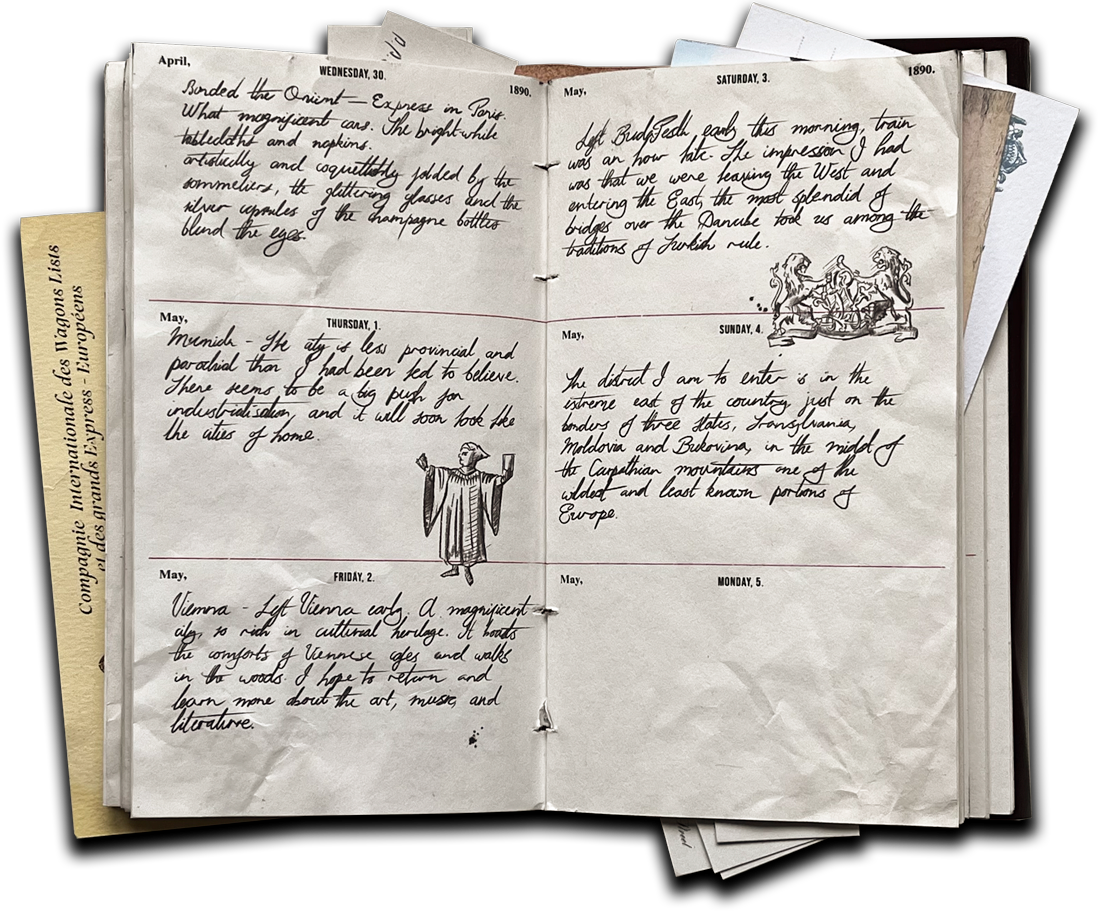 April,
WEDNESDAY, 30.
1890.
Borded the Orient — Express in Paris.
What magnificent cars. The bright white
tablecloths and napkins.
artistically and coquettishly folded by the
sommeliers, the glittering glasses and the
silver capsules of the champagne bottles
blind the eyes.
May,
THURSDAY, 1.
Munich - The city is less provincial and
parochial than I had been led to believe.
There seems to be a big push for
industrialisation, and it will soon look like
the cities of home.
May,
FRIDAY, 2.
Vienna - Left Vienna early. A magnificent
city, so rich in cultural heritage. It boasts
the comforts of Viennese cafes and walks
in the woods. I hope to return and
learn more about the art, music, and
literature.
May,
SATURDAY, 3.
1890.
Left early this morning, train
was an hour late. The impression I had
was that we were leaving the West and
entering the East, the most splendid of
bridges over the Danube took us among the
traditions of Turkish rule.
May,
SUNDAY, 4.
The district I am to enter is in the
extreme east of the country, just on the
borders of three states, Transylvania,
Moldovia and Bukovina, in the midst of
the Carpathian mountains one of the
wildest and least known portions of
Europe.
May,
MONDAY, 5.
Compagnie Internationale des Wagons Lists
et des grands Express - Européens